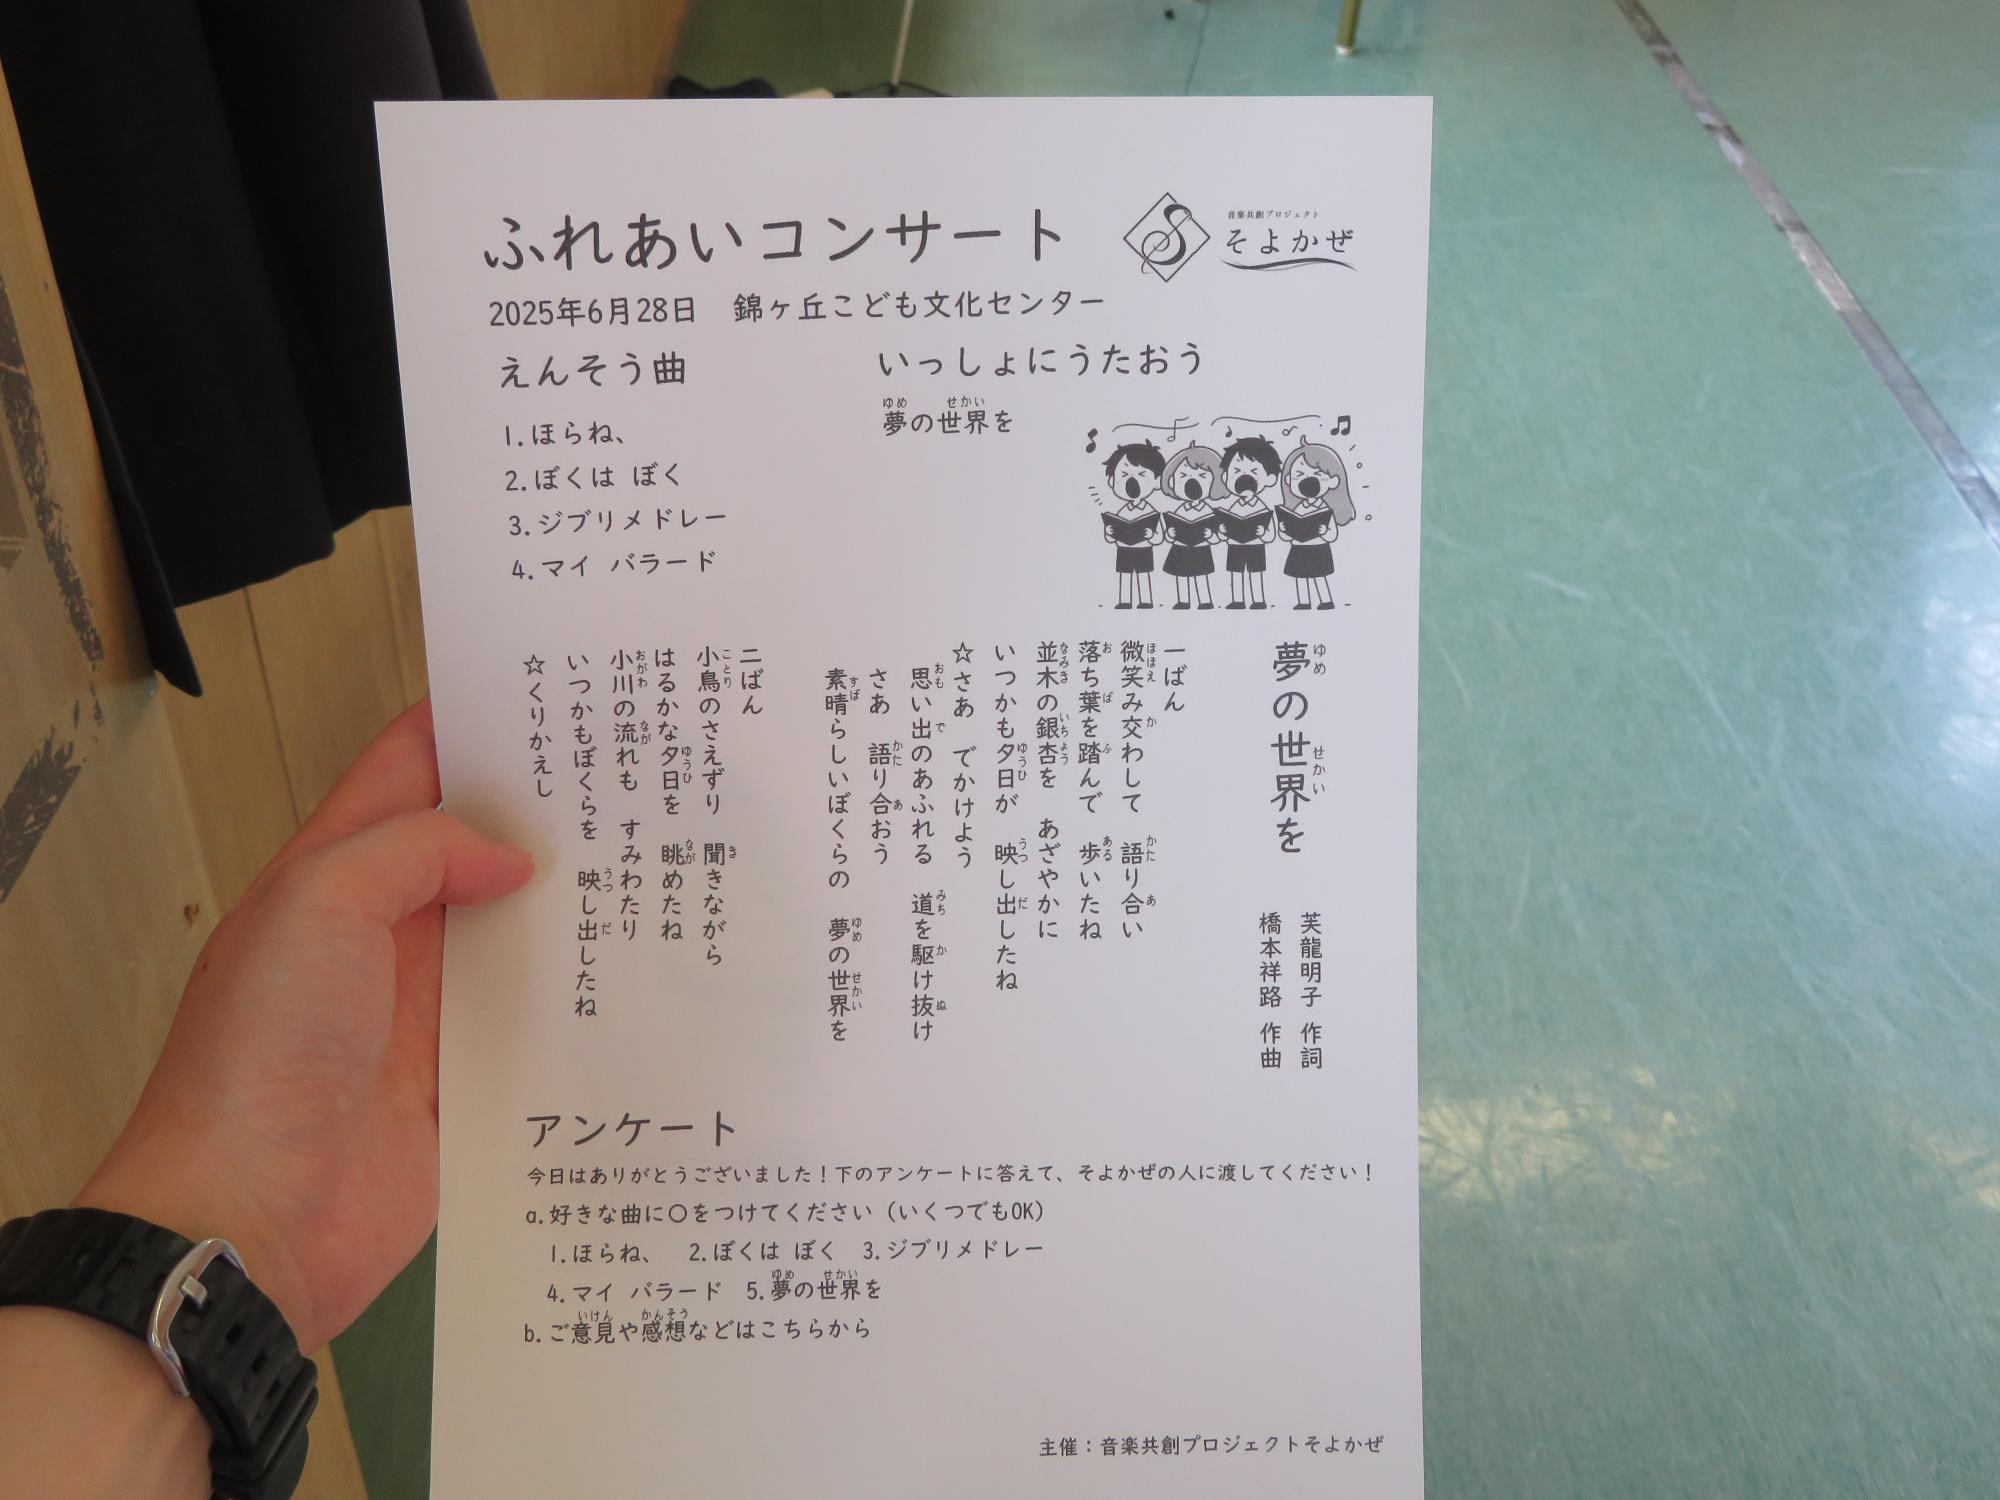 ふれあいコンサート
音楽共創プロジェクト
そよかぜ
2025年6月28日　錦ヶ丘こども文化センター
えんそう曲
1.ほらね、
2.ぼくは ぼく
3.ジブリメドレー
4.マイ バラード
いっしょにうたおう
夢の世界を
ゆめ せかい
夢の世界を
ゆめ せかい
芙龍明子 作詞
橋本祥路 作曲
一ばん
微笑み交わして　語り合い
ほほえ か かた あ
落ち葉を踏んで　歩いたね
お ば ふ ある
並木の銀杏を　あざやかに
なみき いちょう
いつかも夕日が　映し出したね
ゆうひ うつ だ
☆さあ　でかけよう
思い出のあふれる　道を駆け抜け
おも で みち か ぬ
さあ　語り合おう
かた あ
素晴らしいぼくらの　夢の世界を
すば ゆめ せかい
二ばん
小鳥のさえずり　聞きながら
ことり き
はるかな夕日を　眺めたね
ゆうひ なが
小川の流れも　すみわたり
おがわ なが
いつかもぼくらを　映し出したね
うつ だ
☆くりかえし
アンケート
今日はありがとうございました！下のアンケートに答えて、そよかぜの人に渡してください！
a.好きな曲に〇をつけてください（いくつでもOK）
1.ほらね、　2.ぼくは ぼく　3.ジブリメドレー
4.マイ バラード　5.夢の世界を
ゆめ せかい
b.ご意見や感想などはこちらから
いけん かんそう
主催：音楽共創プロジェクトそよかぜ